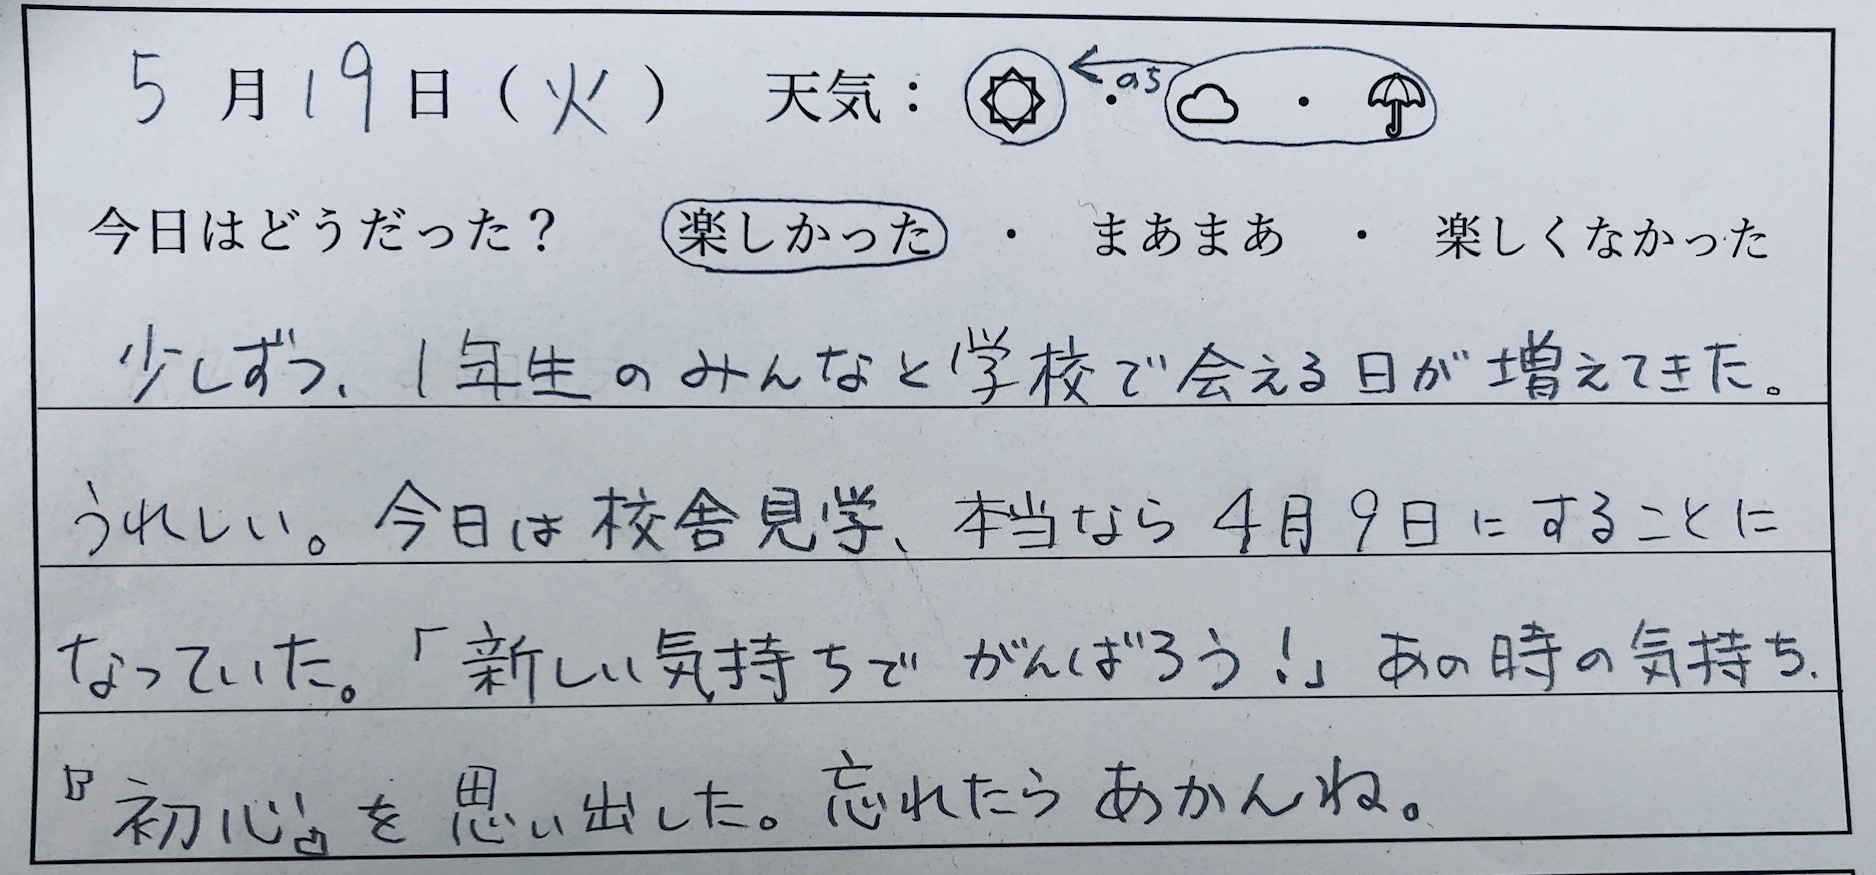 5月19日（火） 天気： ・のち ・
今日はどうだった？ 楽しかった ・ まあまあ ・ 楽しくなかった
少しずつ、1年生のみんなと学校で会える日が増えてきた。
うれしい。今日は校舎見学、本当なら4月9日にすることに
なっていた。「新しい気持ちでがんばろう！」あの時の気持ち、
『初心』を思い出した。忘れたらあかんね。